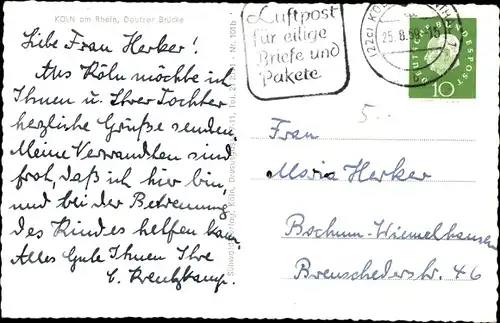 KÖLN am Rhein, Deutzer Brücke
Liebe Frau Herker!
Aus Köln möchte ich
Ihnen u. Ihrer Tochter
herzliche Grüße senden.
Meine Verwandten sind
froh, daß ich hier bin,
und bei der Betreuung
des Kindes helfen kann.
Alles Gute Ihnen Ihre
C. Kreutzkamp.
Luftpost
für eilige
Briefe und
Pakete
(22c) KÖLN
25.8.59-15
DEUTSCHE BUNDESPOST
10
5.-
Frau
Maria Herker
Bochum-Wiemelhausen
Brenschederstr. 46